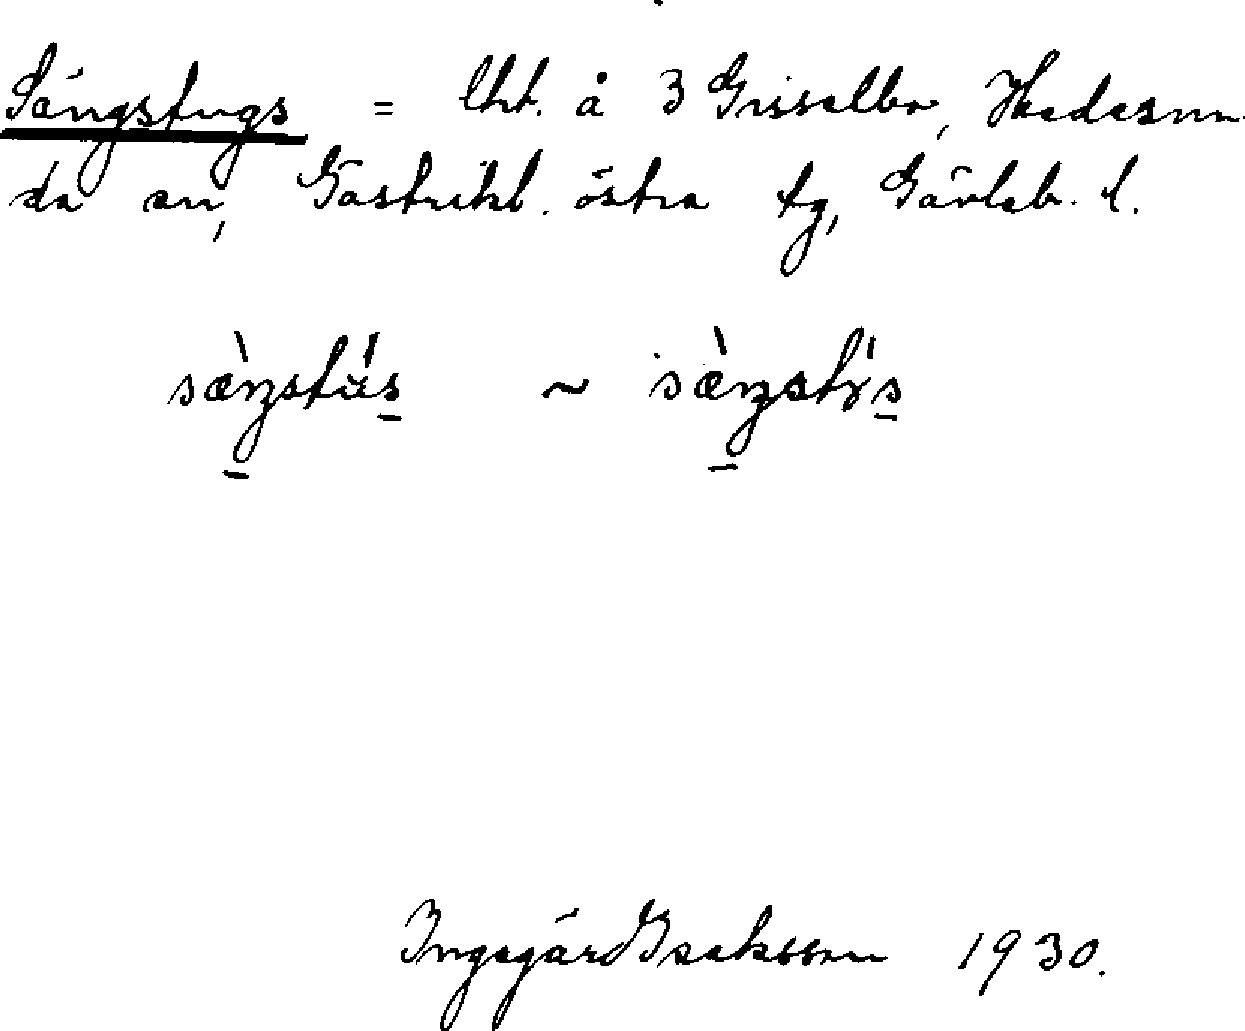 Sängstugs = lht. å 3 Grisselbo, Hedesun
da sn, Gästrikl. östra tg, Gävleb. l.
Ingegärd Isaksson 1930.